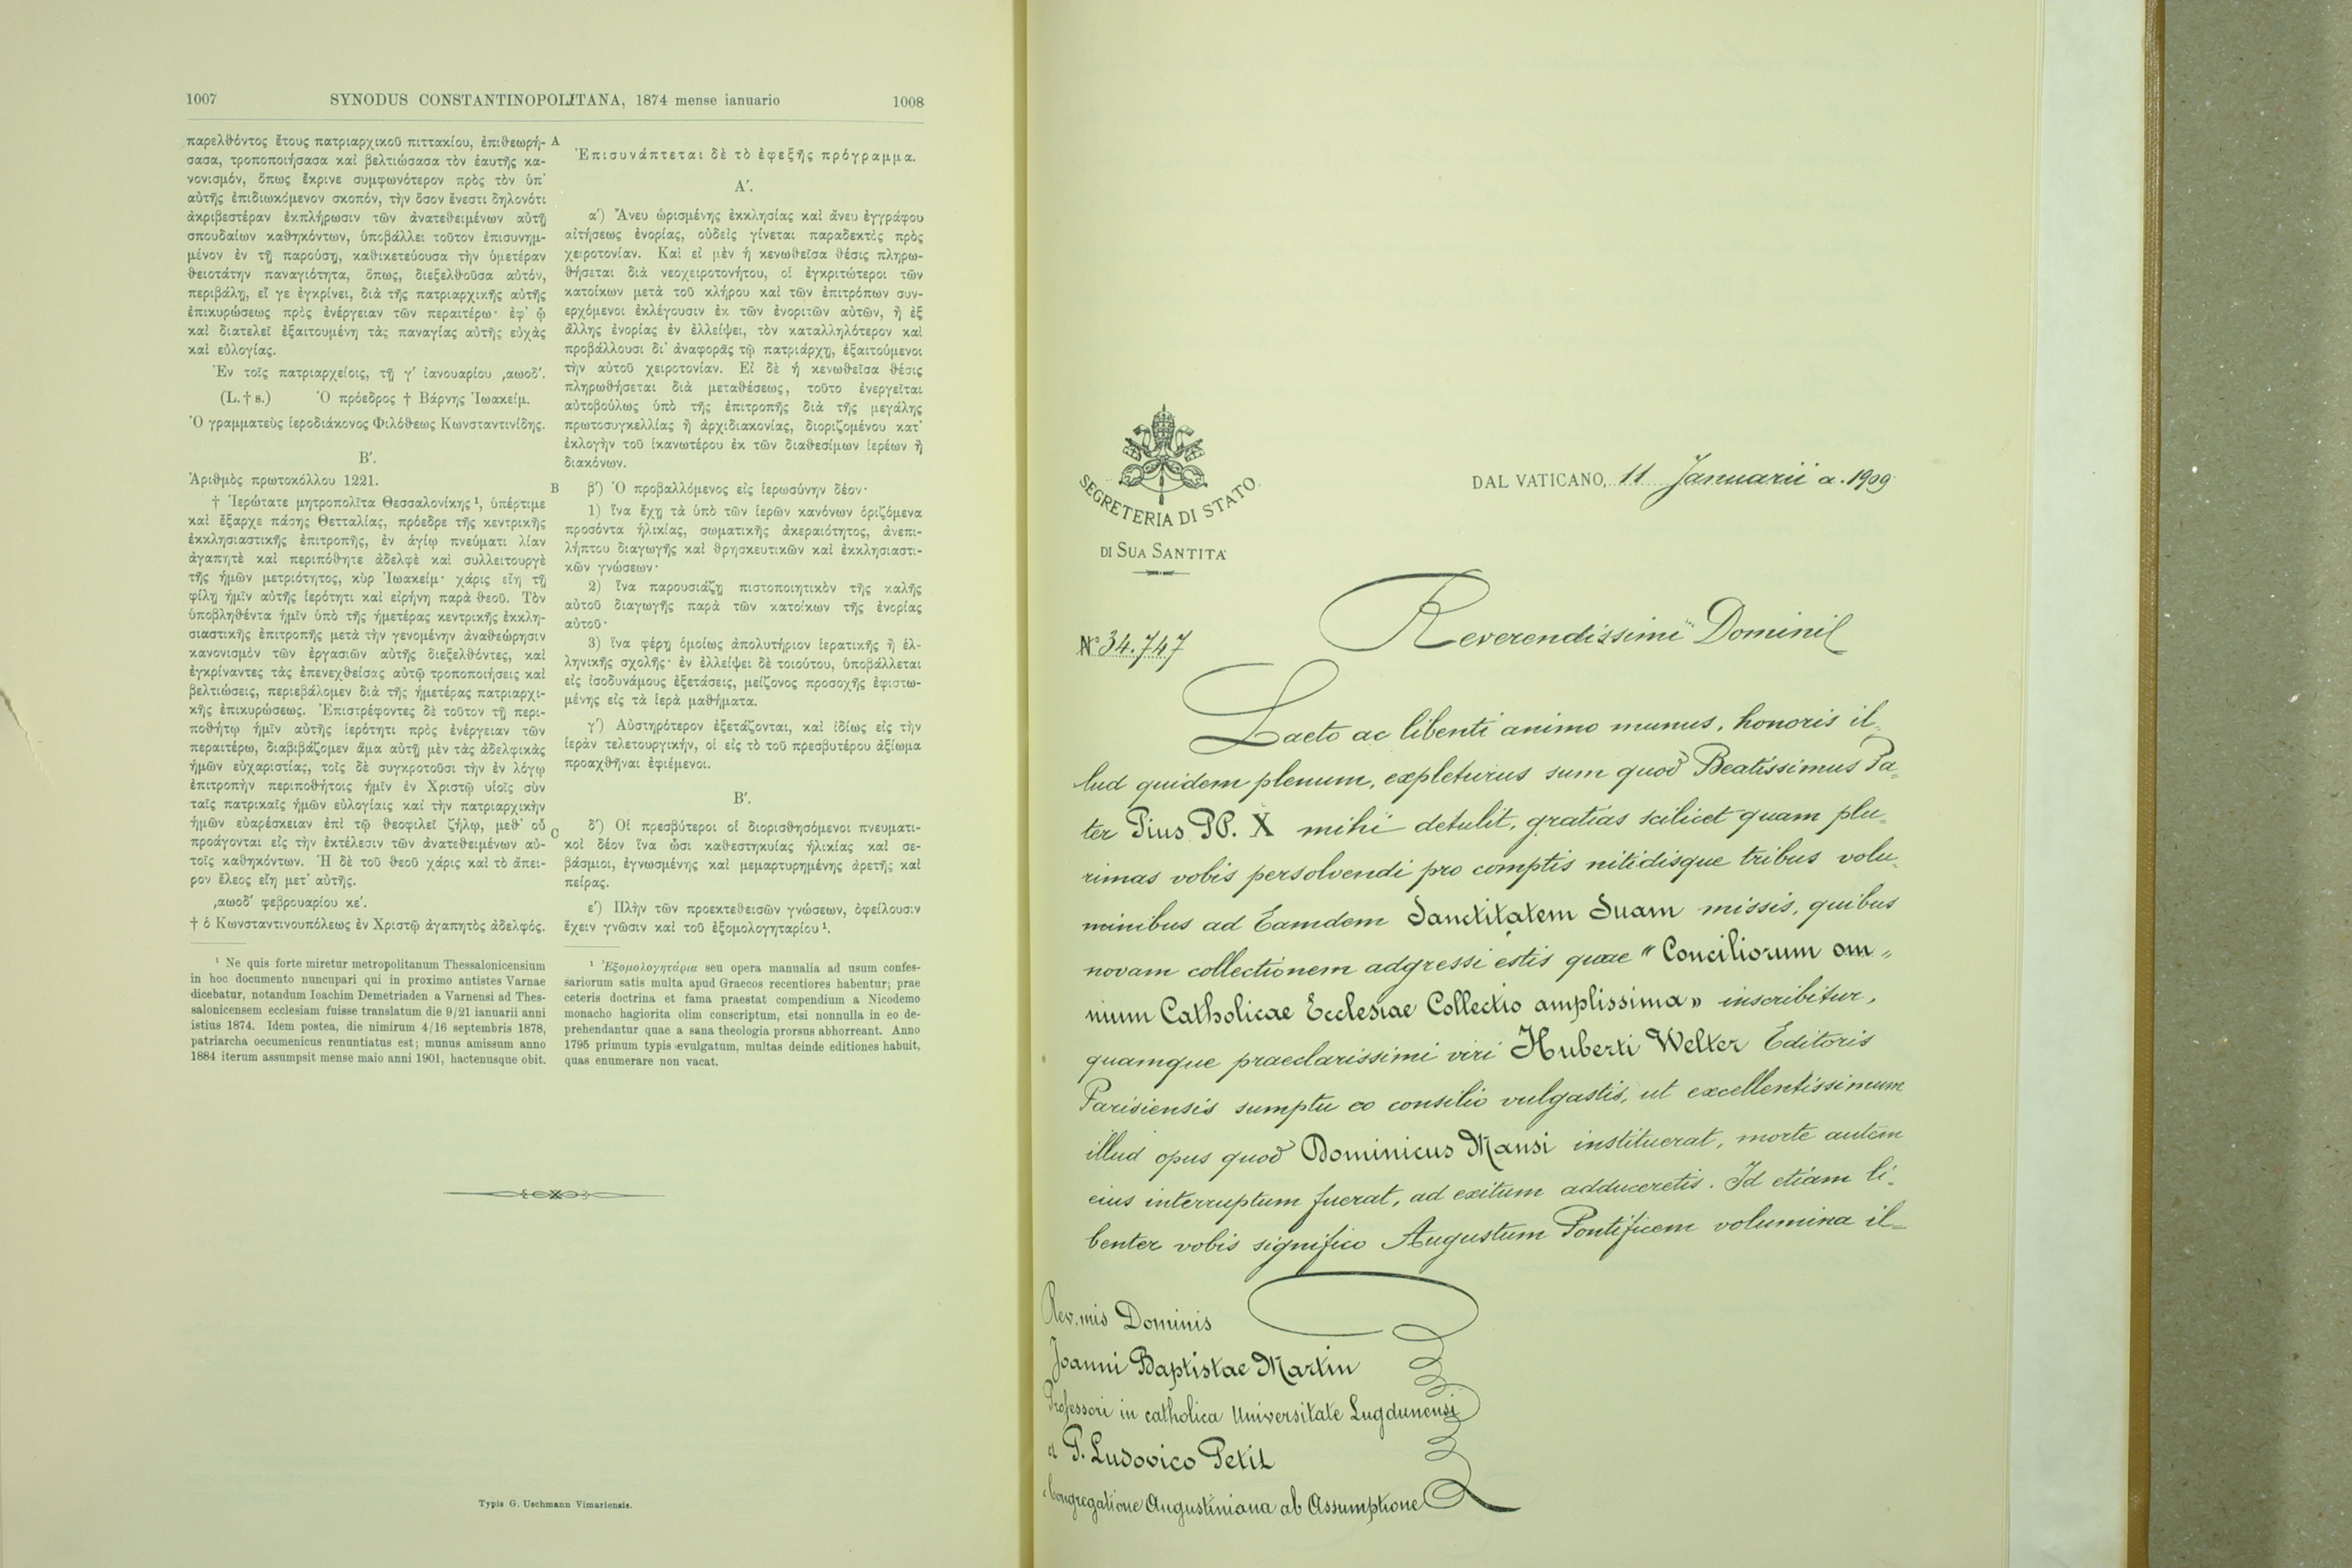 1007 SYNODUS CONSTANTINOPOLITANA, 1874 mense ianuario 1008
παρελθόντος ἔτους πατριαρχικοῦ πιττακίου, ἐπιθεωρή-
σασα, τροποποιήσασα καὶ βελτιώσασα τὸν ἑαυτῆς κα-
νονισμόν, ὅπως ἔκρινε συμφωνότερον πρὸς τὸν ὑπ᾽
αὐτῆς ἐπιδιωκόμενον σκοπόν, τὴν ὅσον ἔνεστι δηλονότι
ἀκριβεστέραν ἐκπλήρωσιν τῶν ἀνατεθειμένων αὐτῇ
σπουδαίων καθηκόντων, ὑποβάλλει τοῦτον ἐπισυνημ-
μένον ἐν τῇ παρούσῃ, καθικετεύουσα τὴν ὑμετέραν
θειοτάτην παναγιότητα, ὅπως, διεξελθοῦσα αὐτόν,
περιβάλῃ, εἴ γε ἐγκρίνει, διὰ τῆς πατριαρχικῆς αὐτῆς
ἐπικυρώσεως πρὸς ἐνέργειαν τῶν περαιτέρω· ἐφ᾽ ᾧ
καὶ διατελεῖ ἐξαιτουμένη τὰς παναγίας αὐτῆς εὐχὰς
καὶ εὐλογίας.
Ἐν τοῖς πατριαρχείοις, τῇ γ′ ἰανουαρίου ͵αωοδ′.
(L. † s.) Ὁ πρόεδρος † Βάρνης Ἰωακείμ.
Ὁ γραμματεὺς ἱεροδιάκονος Φιλόθεως Κωνσταντινίδης.
Β′.
Ἀριθμὸς πρωτοκόλλου 1221.
† Ἱερώτατε μητροπολῖτα Θεσσαλονίκης ¹, ὑπέρτιμε
καὶ ἔξαρχε πάσης Θετταλίας, πρόεδρε τῆς κεντρικῆς
ἐκκλησιαστικῆς ἐπιτροπῆς, ἐν ἁγίῳ πνεύματι λίαν
ἀγαπητὲ καὶ περιπόθητε ἀδελφὲ καὶ συλλειτουργὲ
τῆς ἡμῶν μετριότητος, κὺρ Ἰωακείμ· χάρις εἴη τῇ
φίλῃ ἡμῖν αὐτῆς ἱερότητι καὶ εἰρήνη παρὰ θεοῦ. Τὸν
ὑποβληθέντα ἡμῖν ὑπὸ τῆς ἡμετέρας κεντρικῆς ἐκκλη-
σιαστικῆς ἐπιτροπῆς μετὰ τὴν γενομένην ἀναθεώρησιν
κανονισμὸν τῶν ἐργασιῶν αὐτῆς διεξελθόντες, καὶ
ἐγκρίναντες τὰς ἐπενεχθείσας αὐτῷ τροποποιήσεις καὶ
βελτιώσεις, περιεβάλομεν διὰ τῆς ἡμετέρας πατριαρχι-
κῆς ἐπικυρώσεως. Ἐπιστρέφοντες δὲ τοῦτον τῇ περι-
ποθήτῳ ἡμῖν αὐτῆς ἱερότητι πρὸς ἐνέργειαν τῶν
περαιτέρω, διαβιβάζομεν ἅμα αὐτῇ μὲν τὰς ἀδελφικὰς
ἡμῶν εὐχαριστίας, τοῖς δὲ συγκροτοῦσι τὴν ἐν λόγῳ
ἐπιτροπὴν περιποθήτοις ἡμῖν ἐν Χριστῷ υἱοῖς σὺν
ταῖς πατρικαῖς ἡμῶν εὐλογίαις καὶ τὴν πατριαρχικὴν
ἡμῶν εὐαρέσκειαν ἐπὶ τῷ θεοφιλεῖ ζήλῳ, μεθ᾽ οὗ
προάγονται εἰς τὴν ἐκτέλεσιν τῶν ἀνατεθειμένων αὐ-
τοῖς καθηκόντων. Ἡ δὲ τοῦ θεοῦ χάρις καὶ τὸ ἄπει-
ρον ἔλεος εἴη μετ᾽ αὐτῆς.
͵αωοδ′ φεβρουαρίου κε′.
† ὁ Κωνσταντινουπόλεως ἐν Χριστῷ ἀγαπητὸς ἀδελφός.
¹ Ne quis forte miretur metropolitanum Thessalonicensium
in hoc documento nuncupari qui in proximo antistes Varnae
dicebatur, notandum Ioachim Demetriaden a Varnensi ad Thes-
salonicensem ecclesiam fuisse translatum die 9/21 ianuarii anni
istius 1874. Idem postea, die nimirum 4/16 septembris 1878,
patriarcha oecumenicus renuntiatus est; munus amissum anno
1884 iterum assumpsit mense maio anni 1901, hactenusque obit.
A
B
C
Ἐπισυνάπτεται δὲ τὸ ἐφεξῆς πρόγραμμα.
Α′.
α′) Ἄνευ ὡρισμένης ἐκκλησίας καὶ ἄνευ ἐγγράφου
αἰτήσεως ἐνορίας, οὐδεὶς γίνεται παραδεκτὸς πρὸς
χειροτονίαν. Καὶ εἰ μὲν ἡ κενωθεῖσα θέσις πληρω-
θήσεται διὰ νεοχειροτονήτου, οἱ ἐγκριτώτεροι τῶν
κατοίκων μετὰ τοῦ κλήρου καὶ τῶν ἐπιτρόπων συν-
ερχόμενοι ἐκλέγουσιν ἐκ τῶν ἐνοριτῶν αὐτῶν, ἢ ἐξ
ἄλλης ἐνορίας ἐν ἐλλείψει, τὸν καταλληλότερον καὶ
προβάλλουσι δι᾽ ἀναφορᾶς τῷ πατριάρχῃ, ἐξαιτούμενοι
τὴν αὐτοῦ χειροτονίαν. Εἰ δὲ ἡ κενωθεῖσα θέσις
πληρωθήσεται διὰ μεταθέσεως, τοῦτο ἐνεργεῖται
αὐτοβούλως ὑπὸ τῆς ἐπιτροπῆς διὰ τῆς μεγάλης
πρωτοσυγκελλίας ἢ ἀρχιδιακονίας, διοριζομένου κατ᾽
ἐκλογὴν τοῦ ἱκανωτέρου ἐκ τῶν διαθεσίμων ἱερέων ἢ
διακόνων.
β′) Ὁ προβαλλόμενος εἰς ἱερωσύνην δέον·
1) ἵνα ἔχῃ τὰ ὑπὸ τῶν ἱερῶν κανόνων ὁριζόμενα
προσόντα ἡλικίας, σωματικῆς ἀκεραιότητος, ἀνεπι-
λήπτου διαγωγῆς καὶ θρησκευτικῶν καὶ ἐκκλησιαστι-
κῶν γνώσεων·
2) ἵνα παρουσιάζῃ πιστοποιητικὸν τῆς καλῆς
αὐτοῦ διαγωγῆς παρὰ τῶν κατοίκων τῆς ἐνορίας
αὐτοῦ·
3) ἵνα φέρῃ ὁμοίως ἀπολυτήριον ἱερατικῆς ἢ ἑλ-
ληνικῆς σχολῆς· ἐν ἐλλείψει δὲ τοιούτου, ὑποβάλλεται
εἰς ἰσοδυνάμους ἐξετάσεις, μείζονος προσοχῆς ἐφιστω-
μένης εἰς τὰ ἱερὰ μαθήματα.
γ′) Αὐστηρότερον ἐξετάζονται, καὶ ἰδίως εἰς τὴν
ἱερὰν τελετουργικήν, οἱ εἰς τὸ τοῦ πρεσβυτέρου ἀξίωμα
προαχθῆναι ἐφιέμενοι.
Β′.
δ′) Οἱ πρεσβύτεροι οἱ διορισθησόμενοι πνευματι-
κοὶ δέον ἵνα ὦσι καθεστηκυίας ἡλικίας καὶ σε-
βάσμιοι, ἐγνωσμένης καὶ μεμαρτυρημένης ἀρετῆς καὶ
πείρας.
ε′) Πλὴν τῶν προεκτεθεισῶν γνώσεων, ὀφείλουσιν
ἔχειν γνῶσιν καὶ τοῦ ἐξομολογηταρίου ¹.
¹ Ἐξομολογητάρια seu opera manualia ad usum confes-
sariorum satis multa apud Graecos recentiores habentur; prae
ceteris doctrina et fama praestat compendium a Nicodemo
monacho hagiorita olim conscriptum, etsi nonnulla in eo de-
prehendantur quae a sana theologia prorsus abhorreant. Anno
1795 primum typis evulgatum, multas deinde editiones habuit,
quas enumerare non vacat.
Typis G. Uschmann Vimariensis.
SEGRETERIA DI STATO
DI SUA SANTITÀ
DAL VATICANO, 11 Januarii a. 1909
N° 34.747
Reverendissimi Domini
Laeto ac libenti animo munus, honoris il-
lud quidem plenum, expleturus sum quod Beatissimus Pa-
ter Pius PP. X mihi detulit, gratias scilicet quam plu-
rimas vobis persolvendi pro comptis nitidisque tribus volu-
minibus ad Eamdem Sanctitatem Suam missis, quibus
novam collectionem adgressi estis quae "Conciliorum om-
nium Catholicae Ecclesiae Collectio amplissima» inscribitur,
quamque praeclarissimi viri Huberti Welter Editoris
Parisiensis sumptu eo consilio vulgastis, ut excellentissimum
illud opus quod Dominicus Mansi instituerat, morte autem
eius interruptum fuerat, ad exitum adduceretis. Id etiam li-
benter vobis significo Augustum Pontificem volumina il-
Rev.mis Dominis
Joanni Baptistae Martin
Professori in catholica Universitate Lugdunensi
et P. Ludovico Petit
Congregatione Augustiniana ab Assumptione